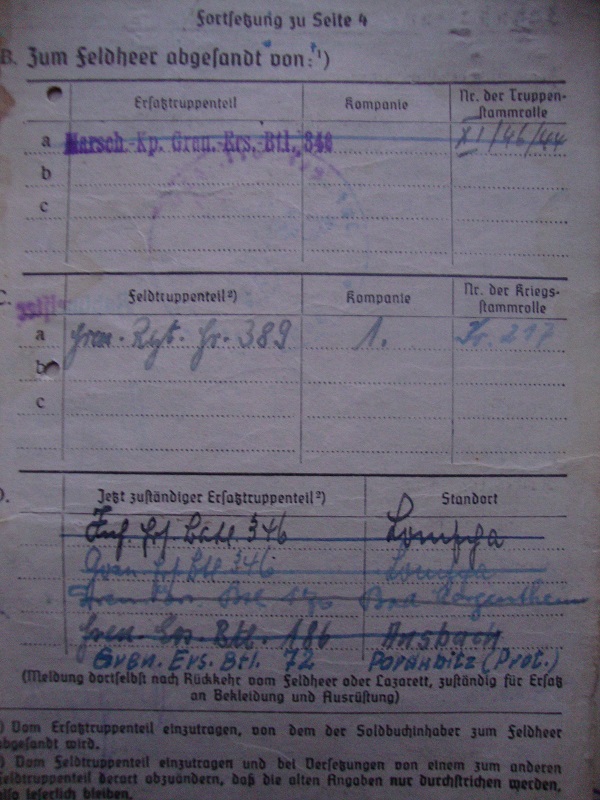 Fortsetzung zu Seite 4
B. Zum Feldheer abgesandt von:¹)
Ersatztruppenteil Kompanie Nr. der Truppen-
stammrolle
a Marsch-Kp. Gren.-Ers.-Btl. 346 XI/46/44
b
c
C. Feldtruppenteil²) Kompanie Nr. der Kriegs-
stammrolle
a Gren. Rgt. Gr. 389 1. Nr. 217
b
c
D. Jetzt zuständiger Ersatztruppenteil²) Standort
Inf. Ers. Batl. 346
Gren. Ers. Btl. 346
Btl. Bad Mergentheim
Gren. Ers. Btl. 186 Ansbach
Gren. Ers. Btl. 72 (Prot.)
(Meldung dortselbst nach Rückkehr vom Feldheer oder Lazarett, zuständig für Ersatz
an Bekleidung und Ausrüstung)
¹) Vom Ersatztruppenteil einzutragen, von dem der Soldbuchinhaber zum Feldheer
abgesandt wird.
²) Vom Feldtruppenteil einzutragen und bei Versetzungen von einem zum anderen
Feldtruppenteil derart abzuändern, daß die alten Angaben nur durchstrichen werden,
also leserlich bleiben.